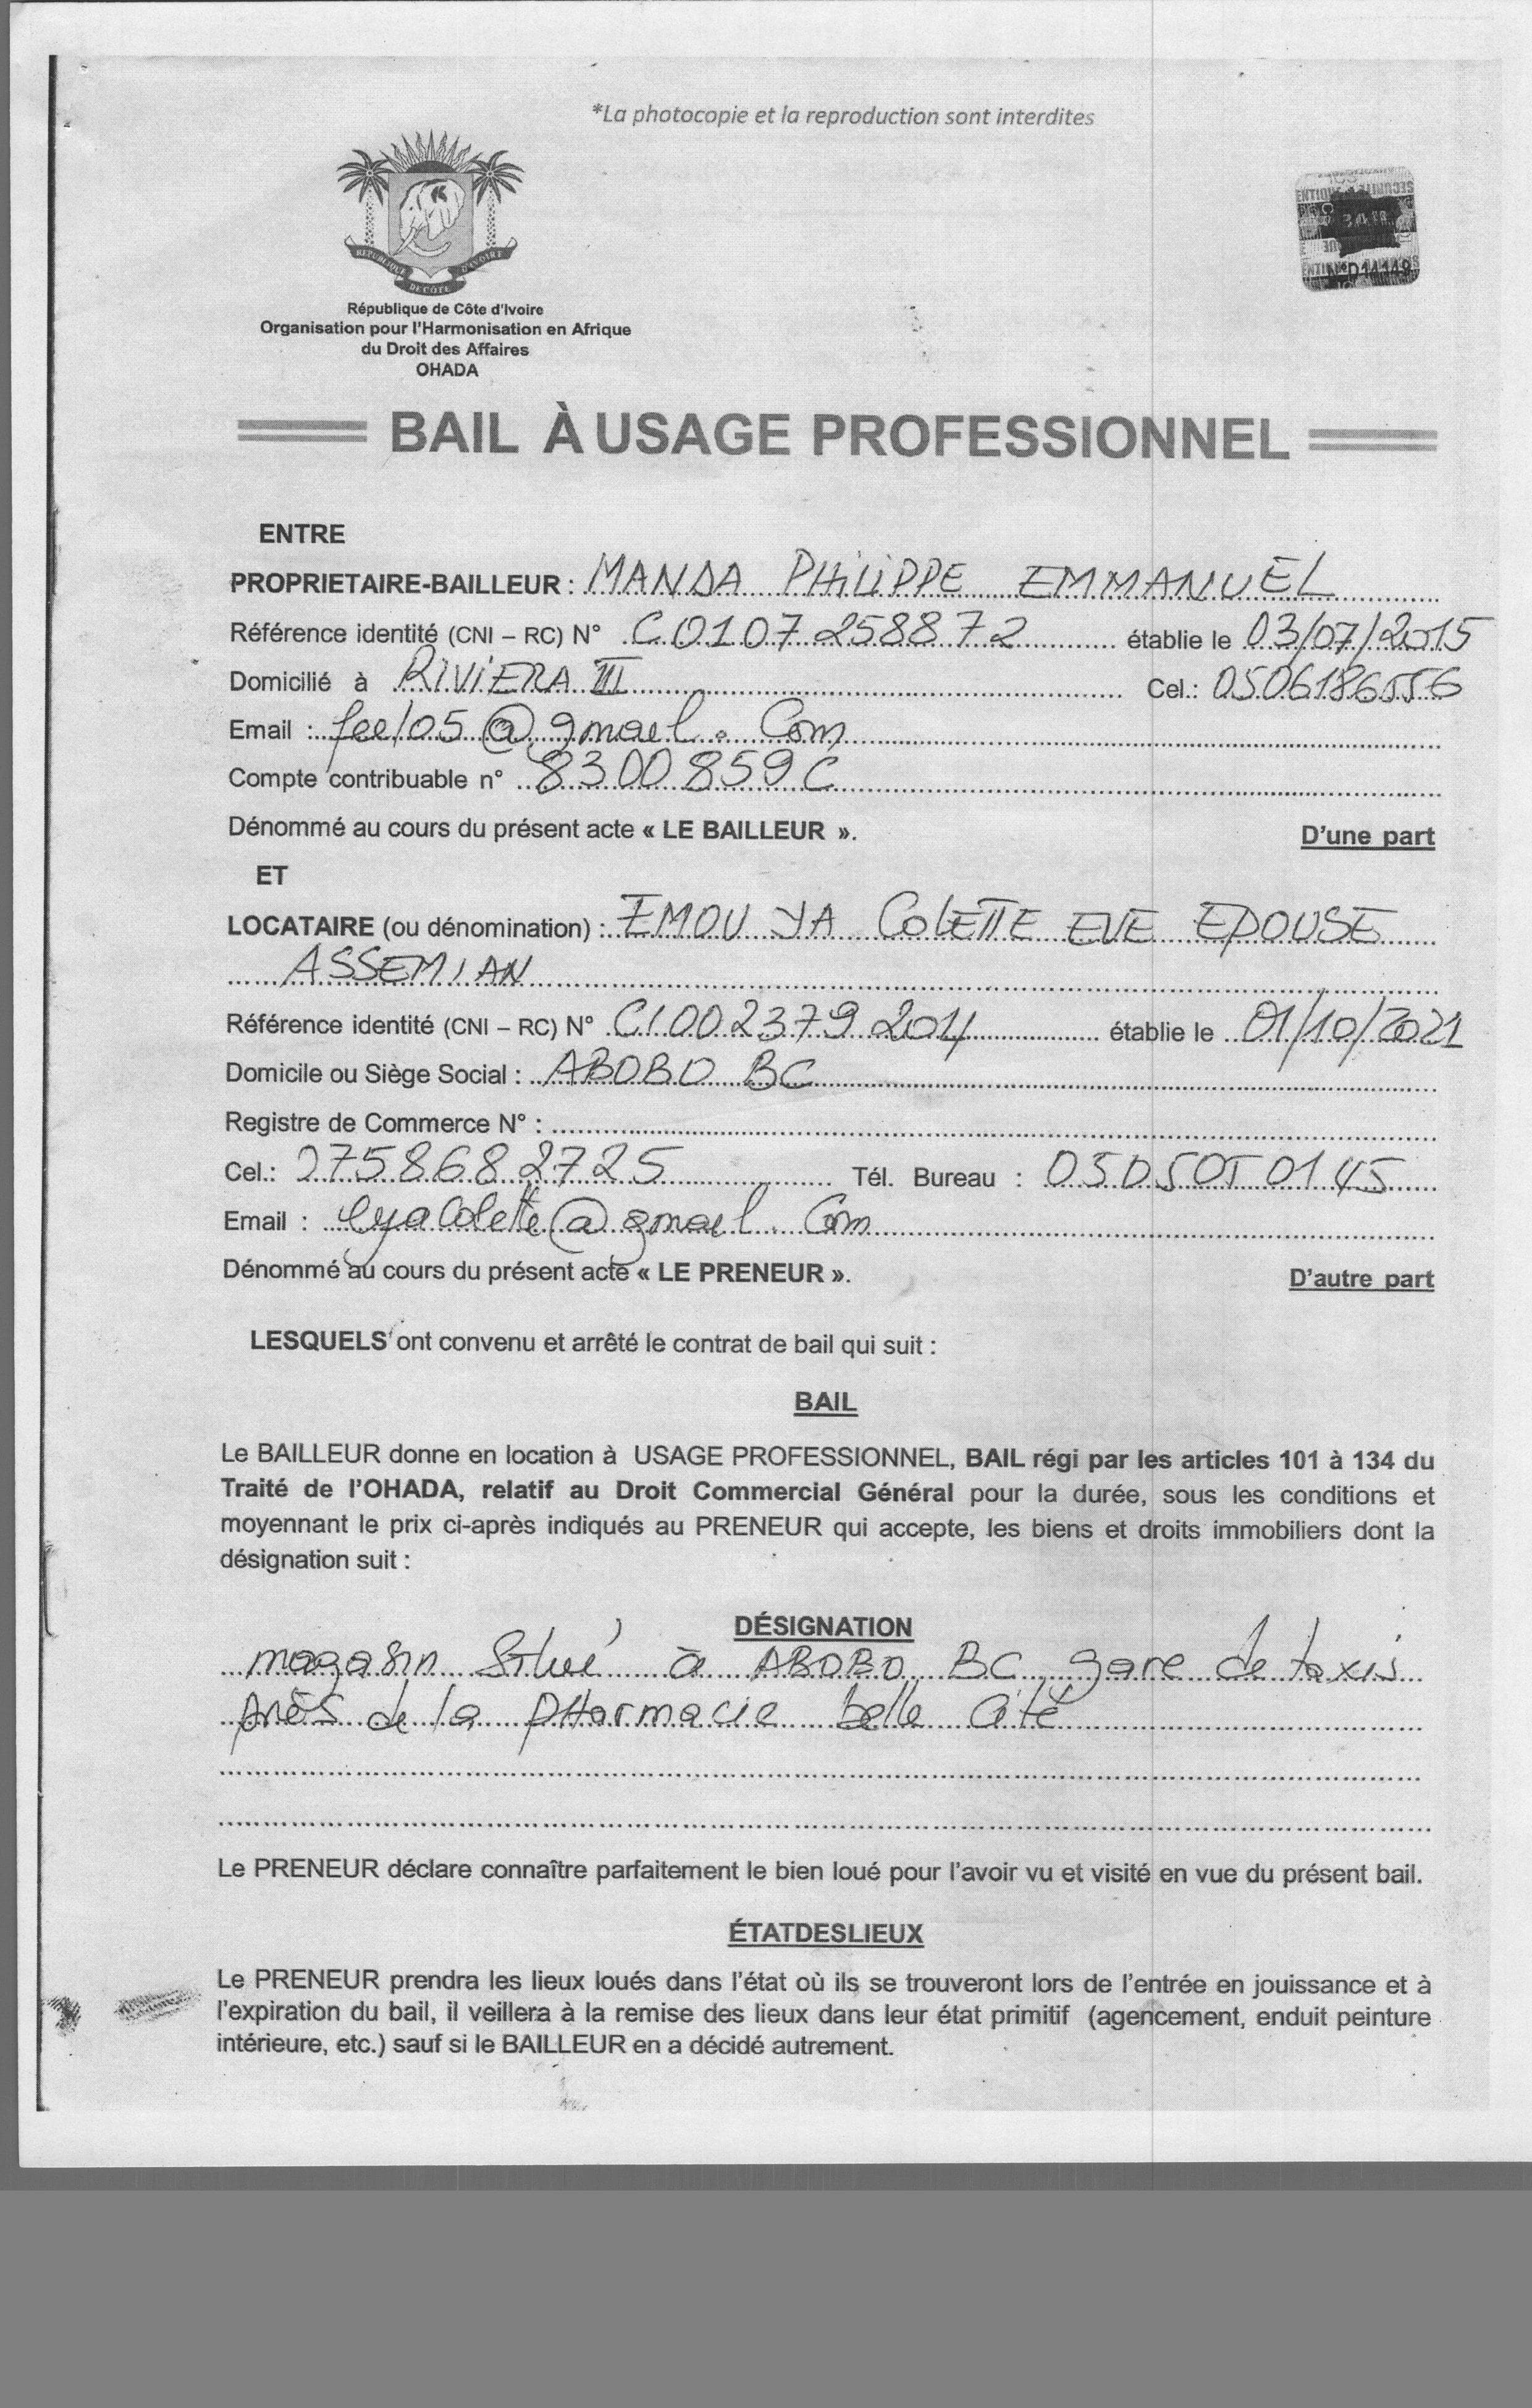 *La photocopie et la reproduction sont interdites
REPUBLIQUE DE CÔTE D'IVOIRE
N°D14149
République de Côte d'Ivoire
Organisation pour l'Harmonisation en Afrique
du Droit des Affaires
OHADA
BAIL À USAGE PROFESSIONNEL
ENTRE
PROPRIETAIRE-BAILLEUR : MANDA PHILIPPE EMMANUEL
Référence identité (CNI – RC) N° C 0107 258872 établie le 03/07/2015
Domicilié à RIVIERA III Cel.: 0506186556
Email : fee105@gmail.Com
Compte contribuable n° 8300859C
Dénommé au cours du présent acte « LE BAILLEUR ». D'une part
ET
LOCATAIRE (ou dénomination) : EMOU YA COLETTE EVE EPOUSE
ASSEMIAN
Référence identité (CNI – RC) N° CI002379204 établie le 01/10/2021
Domicile ou Siège Social : ABOBO BC
Registre de Commerce N° :
Cel.: 2758682725 Tél. Bureau : 0505050145
Email : eyacolette@gmail.Com
Dénommé au cours du présent acte « LE PRENEUR ». D'autre part
LESQUELS ont convenu et arrêté le contrat de bail qui suit :
BAIL
Le BAILLEUR donne en location à USAGE PROFESSIONNEL, BAIL régi par les articles 101 à 134 du
Traité de l'OHADA, relatif au Droit Commercial Général pour la durée, sous les conditions et
moyennant le prix ci-après indiqués au PRENEUR qui accepte, les biens et droits immobiliers dont la
désignation suit :
DÉSIGNATION
magasin Situé à ABOBO BC gare de taxis
près de la PHarmacie belle Cité
Le PRENEUR déclare connaître parfaitement le bien loué pour l'avoir vu et visité en vue du présent bail.
ÉTATDESLIEUX
Le PRENEUR prendra les lieux loués dans l'état où ils se trouveront lors de l'entrée en jouissance et à
l'expiration du bail, il veillera à la remise des lieux dans leur état primitif (agencement, enduit peinture
intérieure, etc.) sauf si le BAILLEUR en a décidé autrement.